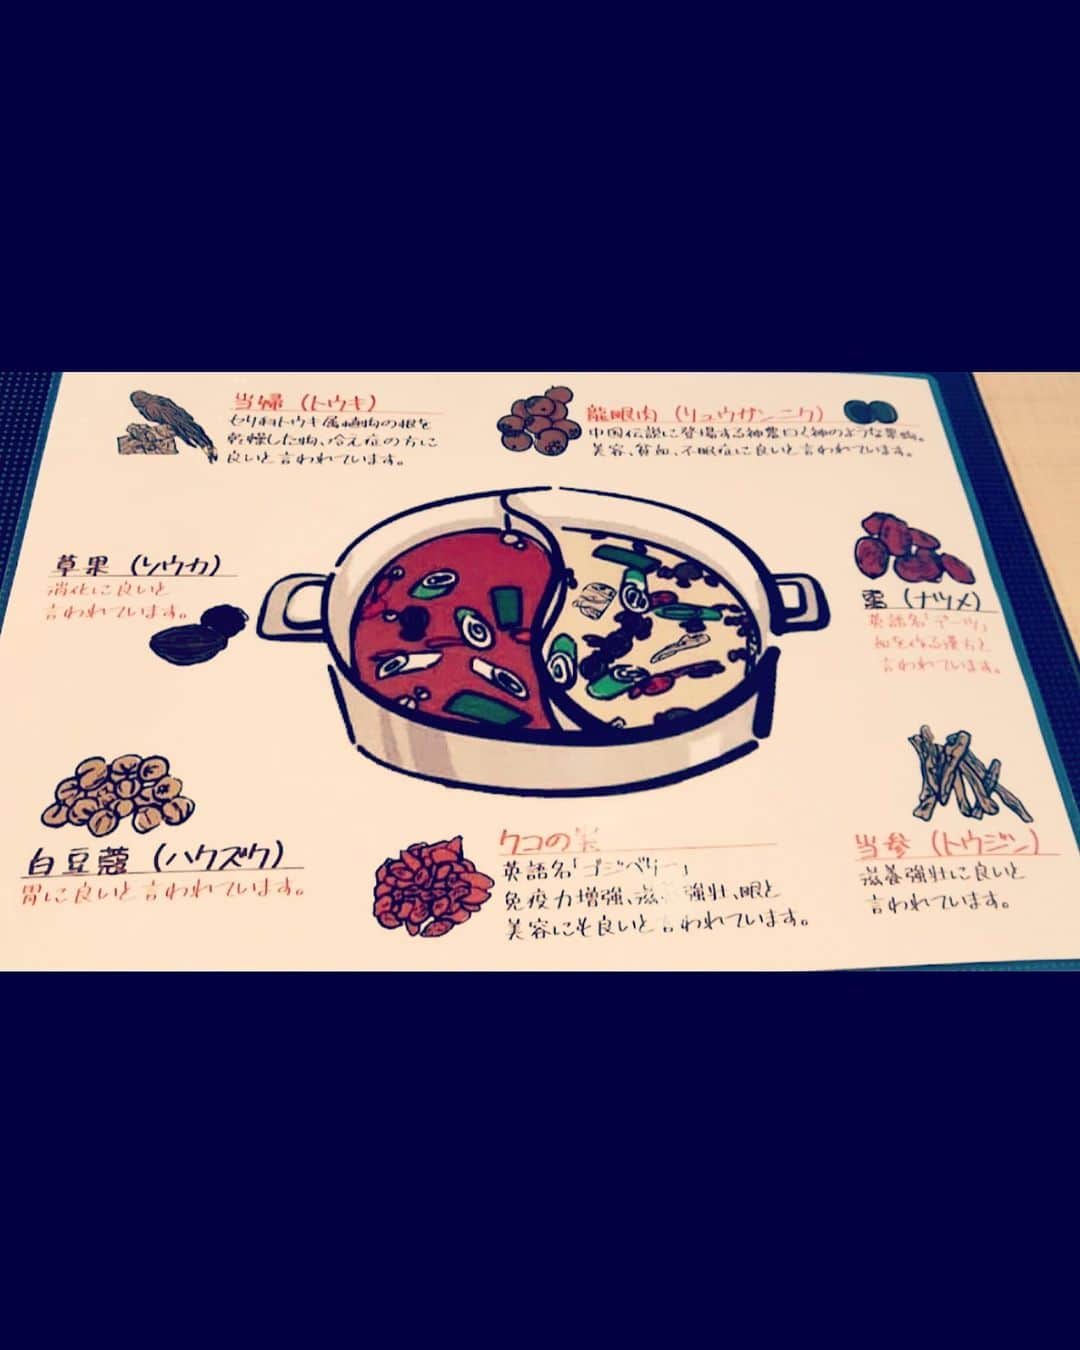 当帰（トウキ）
セリ科トウキ属植物の根を
乾燥した物、冷え症の方に
良いと言われています。
龍眼肉（リュウガンニク）
中国伝説に登場する神農曰く神のような果物。
美容、貧血、不眠症に良いと言われています。
草果（ソウカ）
消化に良いと
言われています。
棗（ナツメ）
英語名「デーツ」
和を作る漢方と
言われています。
白豆蔻（ハクズク）
胃に良いと言われています。
クコの実
英語名「ゴジベリー」
免疫力増強、滋 強壮、眼と
美容にも良いと言われています。
当参（トウジン）
滋養強壮に良いと
言われています。